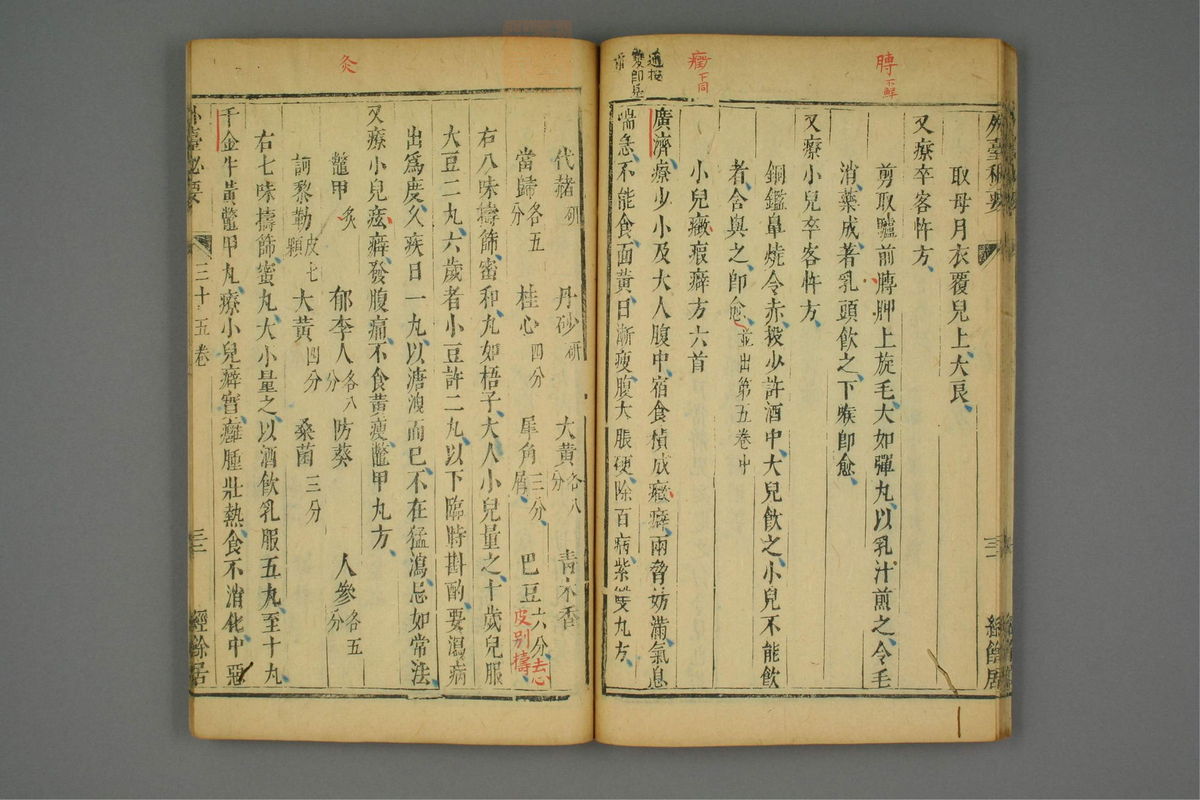 取母月衣覆兒上大良
又療卒客忤方
剪取驢前膊胛上旋毛大如彈丸以乳汁煎之令毛
消藥成著乳頭飲之下喉即愈
又療小兒卒客忤方
銅鑑鼻燒令赤投少許酒中大兒飲之小兒不能飲
者含與之即愈並出第五卷中
小兒癥瘕癖方六首
廣濟療少小及大人腹中宿食積成癥癖兩脅妨滿氣息
喘急不能食面黃日漸瘦腹大脹硬除百病紫雙丸方
代赭研 丹砂研 大黃各八分 青木香
當歸各五分 桂心四分 犀角三分屑 巴豆六分去心皮別擣
右八味擣篩蜜和丸如梧子大人小兒量之十歲兒服
大豆二丸六歲者小豆許二丸以下臨時斟酌要瀉病
出為度久疾日一丸以溏洩而已不在猛瀉忌如常法
又療小兒痃癖發腹痛不食黃瘦鼈甲丸方
鼈甲炙 郁李人各八分 防葵 人參各五分
訶黎勒皮七顆 大黃四分 桑菌三分
右七味擣篩蜜丸大小量之以酒飲乳服五丸至十丸
千金牛黃鼈甲丸療小兒癖實癰腫壯熱食不消化中惡
外臺秘要
三十五卷
經餘居
膊下解
癥下同
灸